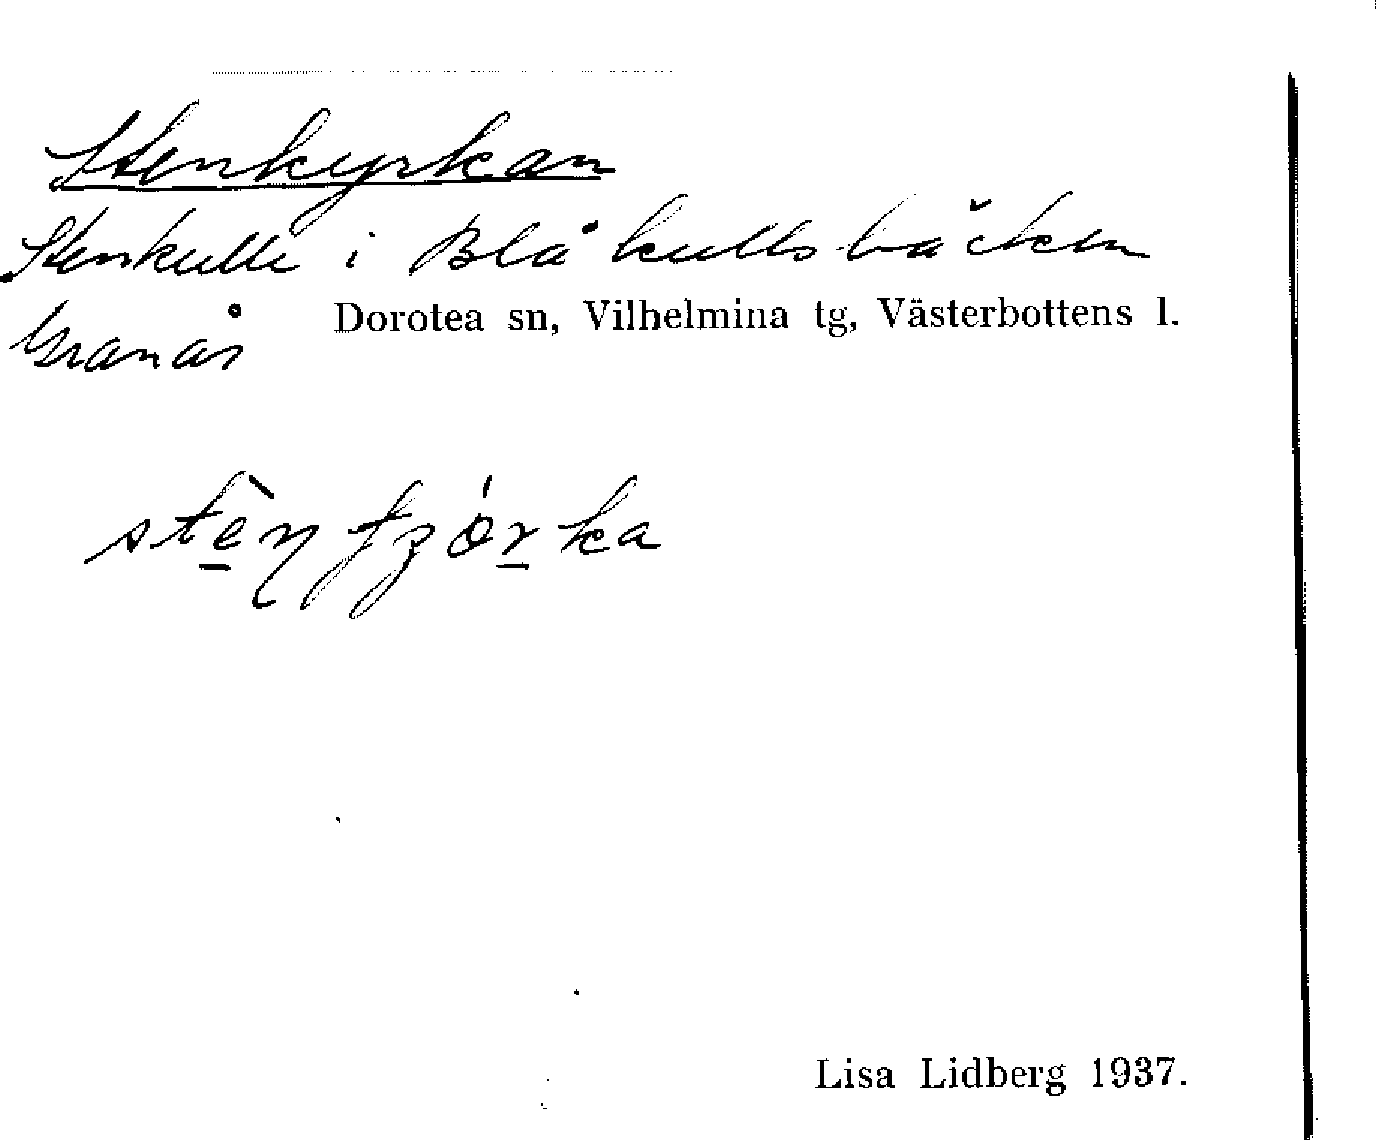 Stenkyrkan
Stenkulle i Blåkullsbäcken
Granås Dorotea sn, Vilhelmina tg, Västerbottens l.
stè̱ŋ fzó̱rka
Lisa Lidberg 1937.